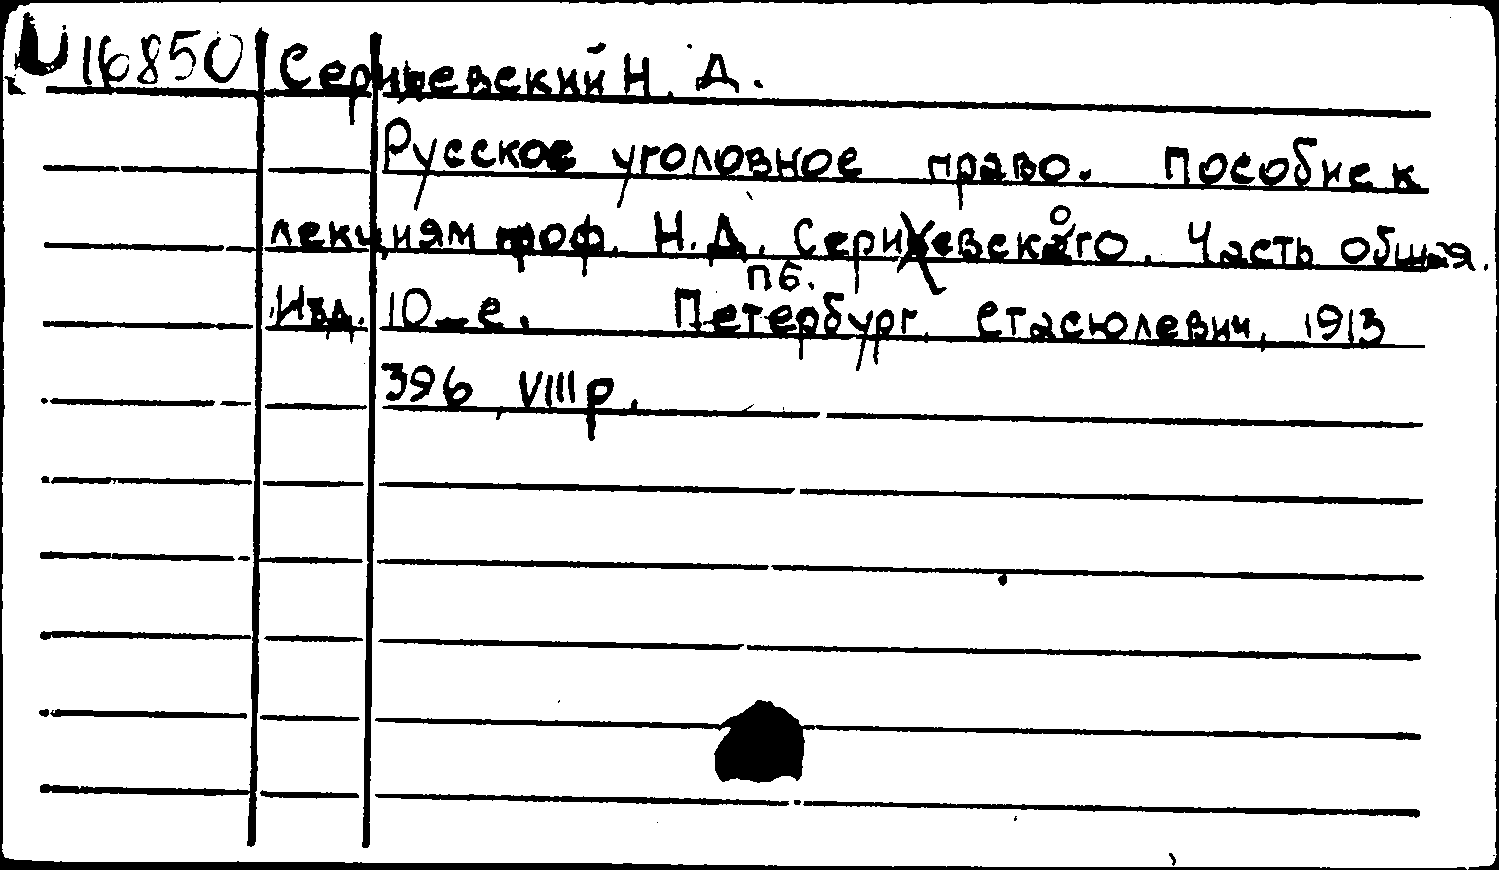 U 16850 Сериевский Н. Д.
Русское уголовное право. Пособие к
лекциям проф. Н. Д. Сериевского. Часть общая.
Пб.
Изд. 10-е. Петербург, Стасюлевич, 1913
396, VIII р.